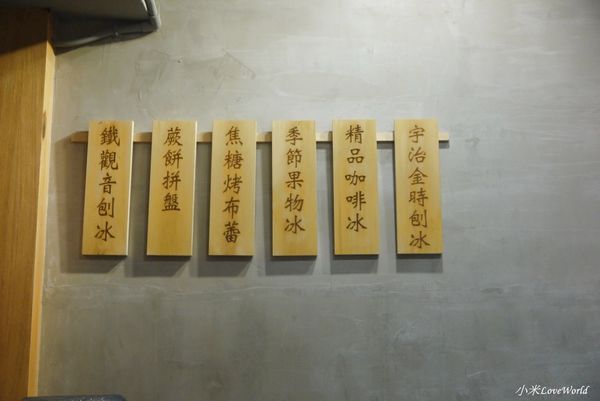 宇治金時刨冰
精品咖啡冰
季節果物冰
焦糖烤布蕾
蕨餅拼盤
鐵觀音刨冰
小米LoveWorld